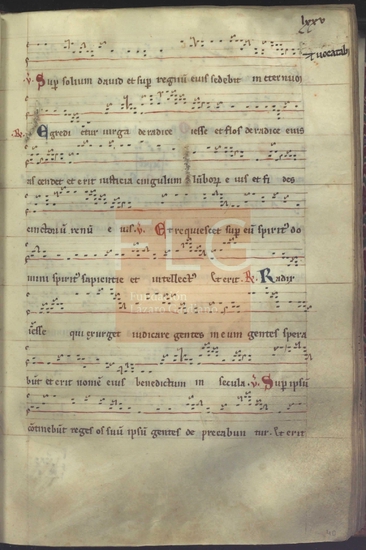 lxxv
℣. Sup solium dauid et sup regnū eius sedebit in eternū
℟. Egredi etur uirga de radice iesse et flos de radice eius
as cendet et erit iusticia cingulum lūborꝝ e ius et fi des
cinctoriū renū e ius. ℣. Et requiescet sup eū spiritꝰ do
mini spiritꝰ sapientie et intellectꝰ Et erit. ℟. Radix
iesse qui exurget iudicare gentes in eum gentes spera
būt et erit nomē eius benedictum in secula. ℣. Sup ipsū
cōtinebūt reges os suū ipsū gentes de precabun tur. Et erit
FLG